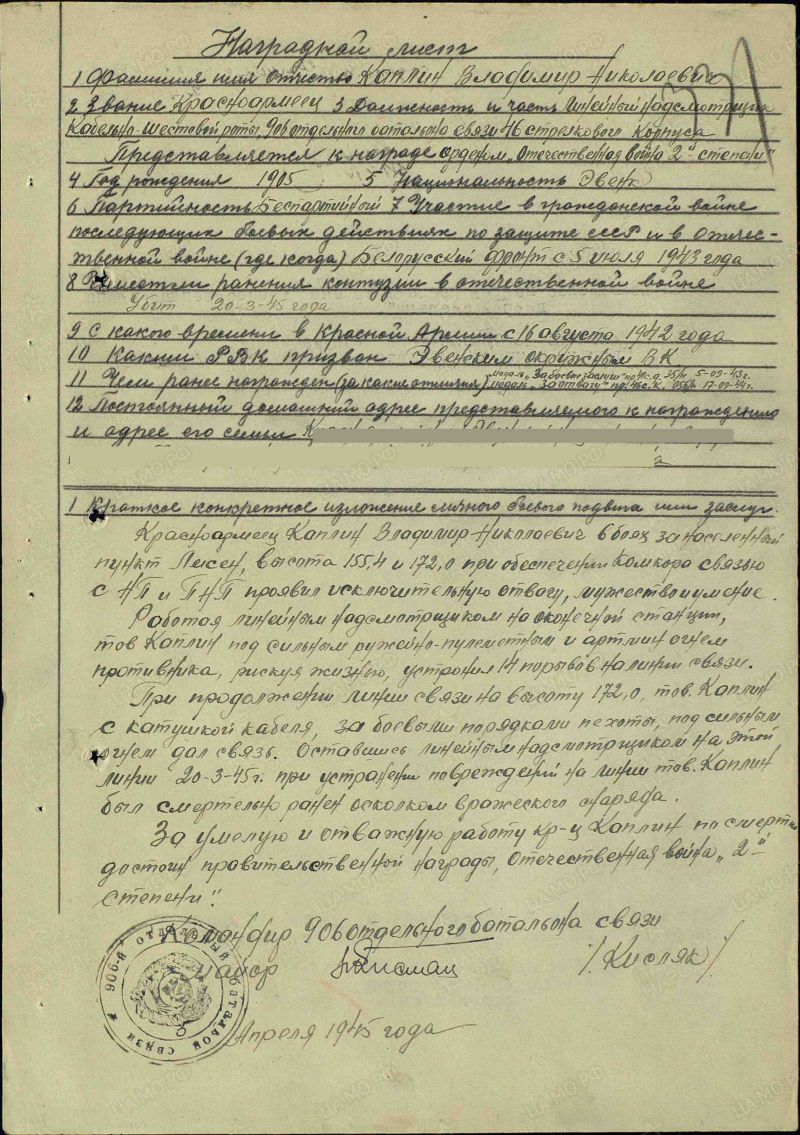 Наградной лист
1 Фамилия имя отчество Каплин Владимир Николаевич
2 Звание Красноармеец 3 Должность и часть Линейный надсмотрщик
Кабельно-шестовой роты, 906 отдельного батальона связи 46 стрелкового корпуса
Представляется к награде орденом „Отечественная война 2й степени"
4 Год рождения 1905 5 Национальность Эвенк
6 Партийность Беспартийный 7 Участие в гражданской войне
последующих боевых действиях по защите СССР и в отечес-
твенной войне (где когда) Белорусский фронт с 5 июля 1943 года
8 ранения контузии в отечественной войне
Убит 20-3-45 года
9 С какого времени в Красной Армии с 16 августа 1942 года
10 Каким РВК призван Эвенским окружным ВК
11 Чем ранее награжден (за какие отличия) медаль „За боевые заслуги" 5-09-43г.
медаль „За отвагу" пр. 46 с.к. 17-09-44г.
12 Постоянный домашний адрес представляемого к награждению
и адрес его семьи
1 Краткое конкретное изложение личного боевого подвига или заслуг.
Красноармеец Каплин Владимир Николаевич в боях за населенный
пункт Лисен, высота 155,4 и 172,0 при обеспечении Комкора связью
с НП и ПНП проявил исключительную отвагу, мужество и умение.
Работая линейным надсмотрщиком на оконечной станции,
тов Каплин под сильным ружейно-пулеметным и артмин огнем
противника, рискуя жизнью, устронил 14 порывов на линии связи.
При продолжении линии связи на высоту 172,0, тов. Каплин
с катушкой кабеля, за боевыми порядками пехоты, под сильным
огнем дал связь. Оставшись линейным надсмотрщиком на этой
линии 20-3-45г. при устранении повреждений на линии тов. Каплин
был смертельно ранен осколком вражеского снаряда.
За умелую и отважную работу кр-ц Каплин посмертно
достоин правительственной награды, „Отечественная война „2-й
степени".
Командир 906 отдельного батальона связи
майор /Кисляк/
906-й отдельный батальон связи
Апреля 1945 года